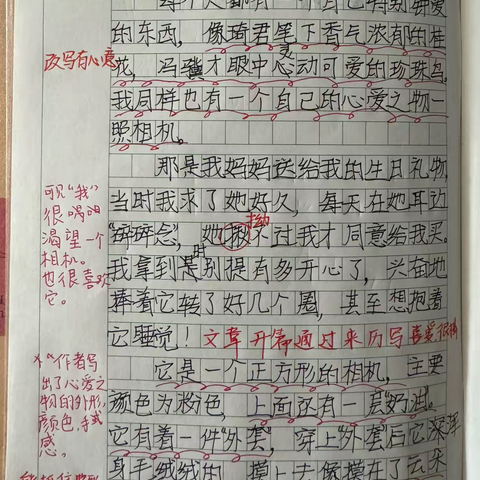 每个人都有一个自己特别钟爱
的东西，像琦君笔下香气浓郁的桂
花，冯骥才眼中心动可爱的珍珠鸟，
灵
我同样也有一个自己的心爱之物—
照相机。
那是我妈妈送给我的生日礼物，
当时我求了她好久，每天在她耳边
“碎碎念”，她拗不过我才同意给我买。
拗
我拿到是别提有多开心了，兴奋地
时
捧着它转了好几个圈，甚至想抱着
它睡觉！
文章开篇通过来历写喜爱
它是一个正方形的相机，主要
颜色为粉色，上面还有一层“奶油”。
它有着一件“外套”，穿上“外套”后它浑
身手绒绒的，摸上去像摸在了云朵
改写有心意
可见“我”
很渴望一个
相机。
也很喜欢
它。
作者写
出了心爱之
物的外形，
颜色，手感
感。